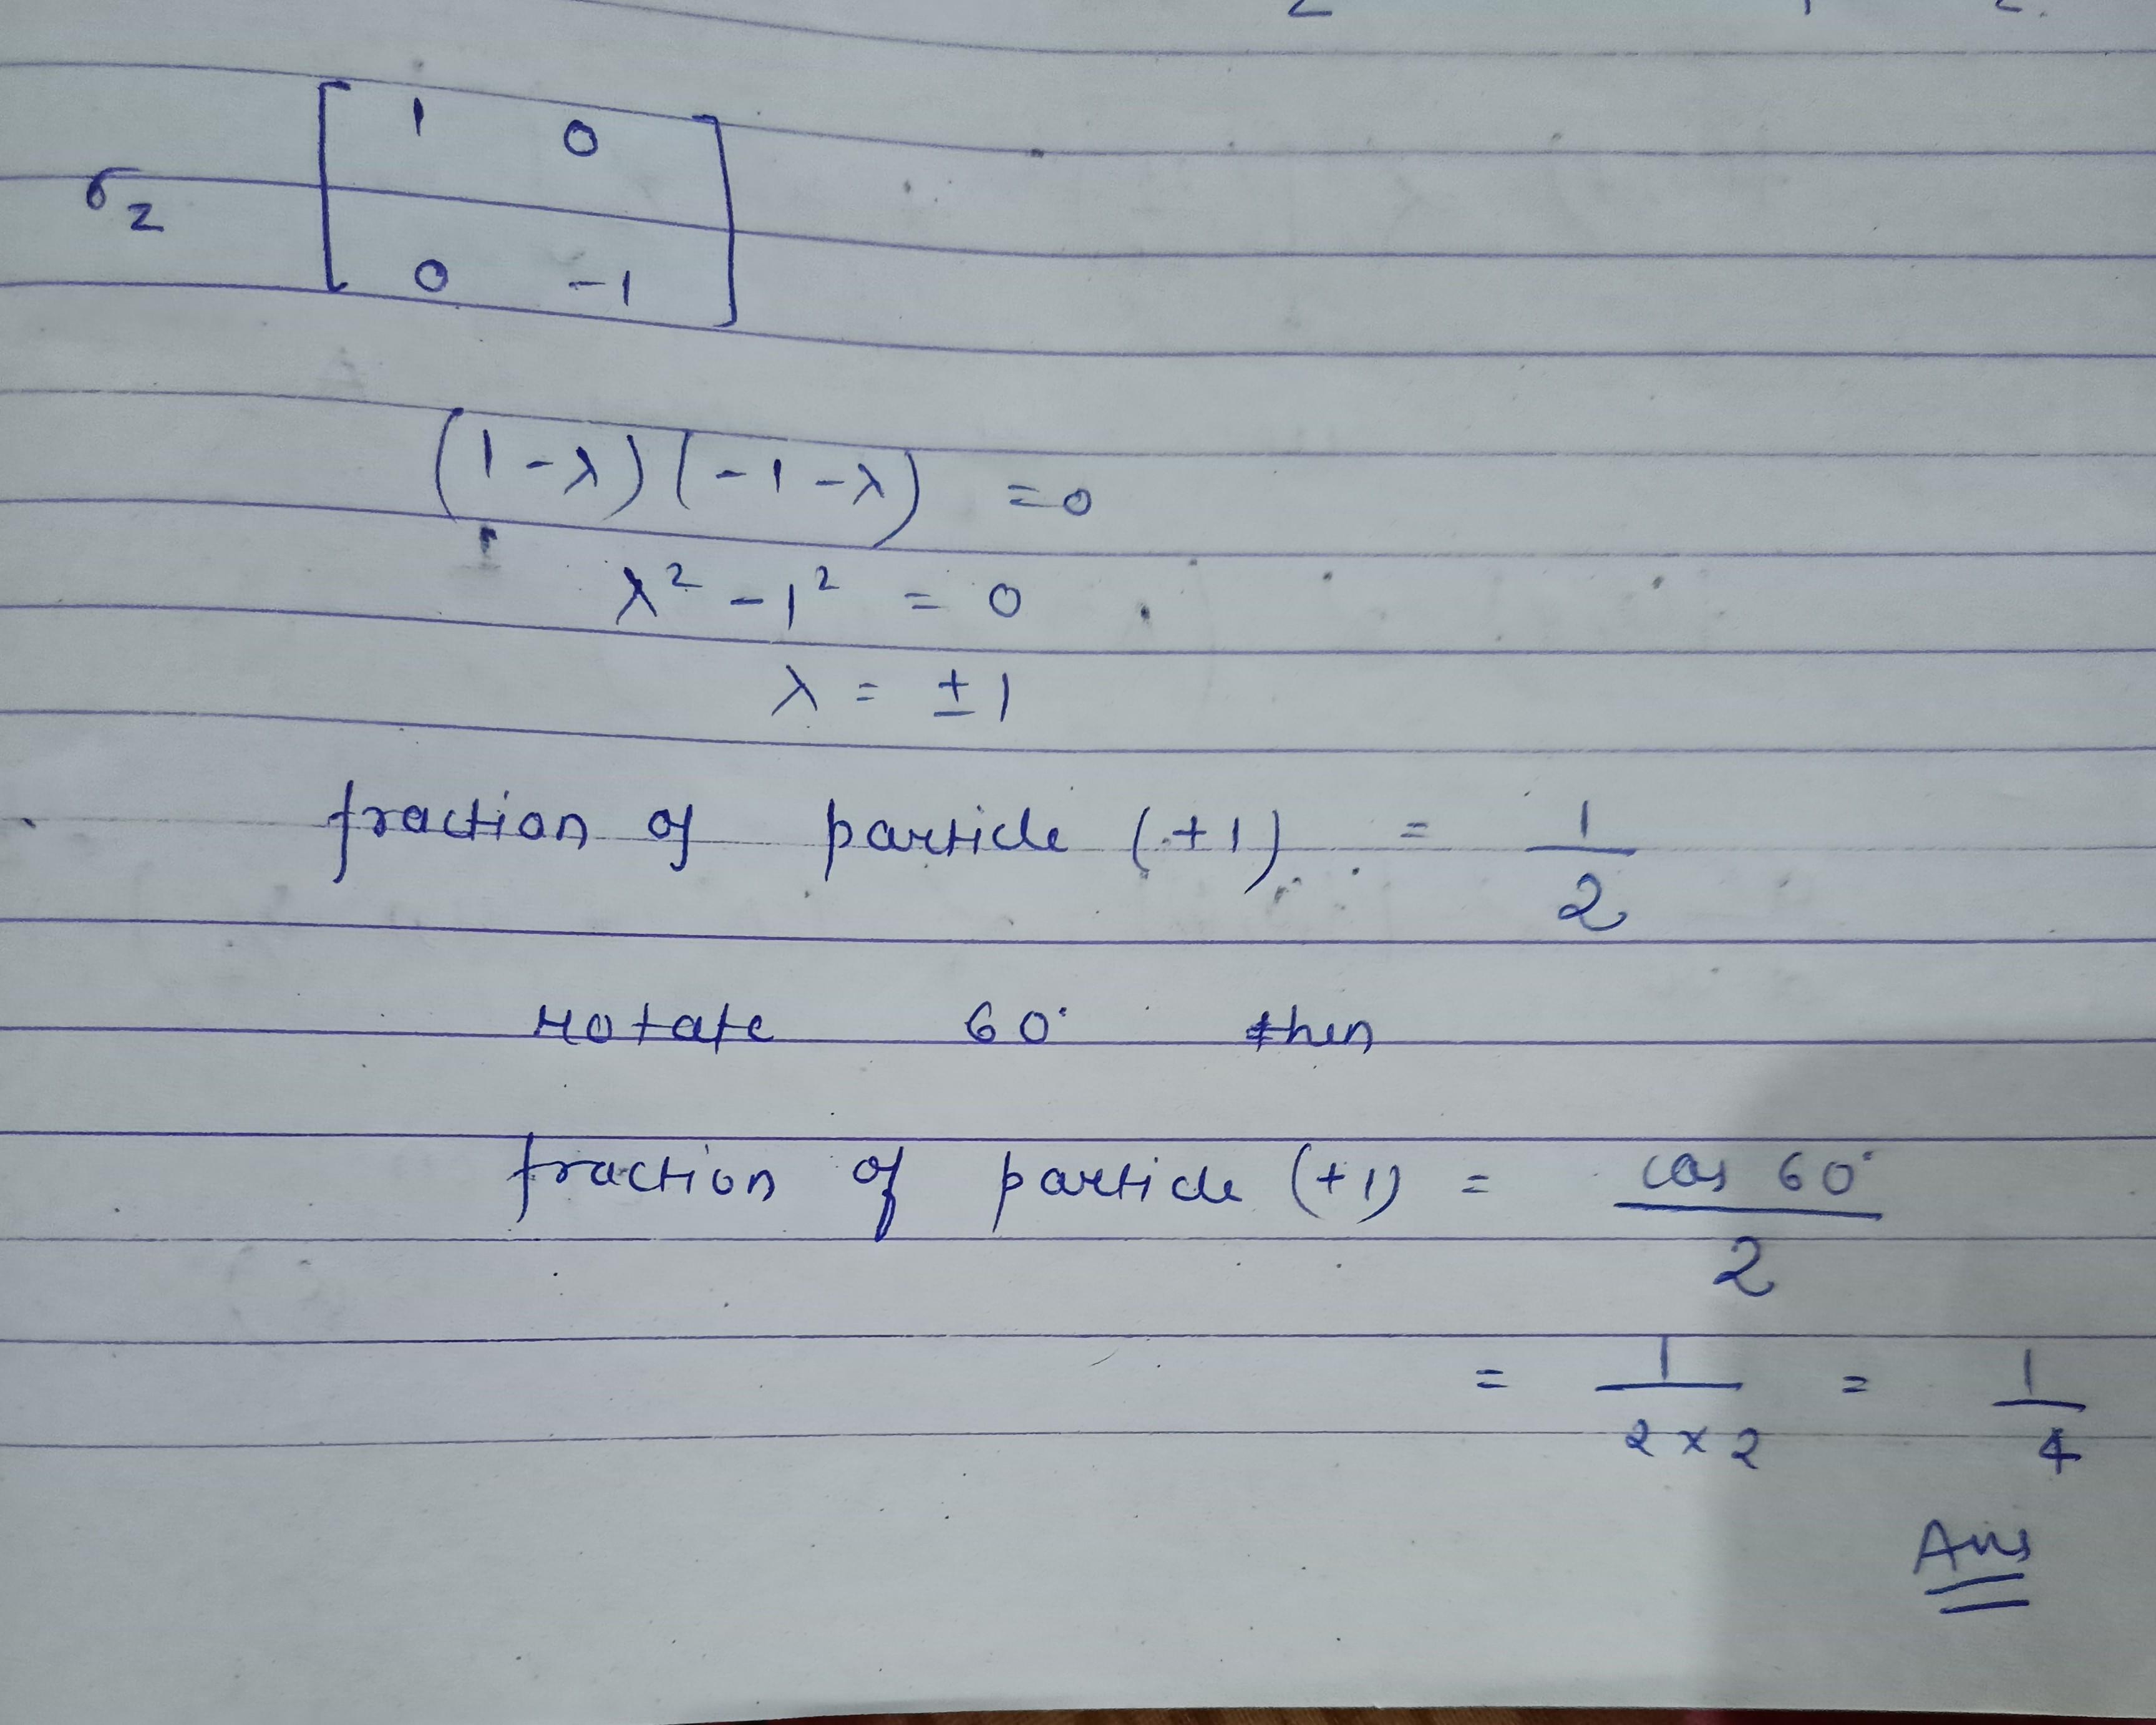 σz [ 1 0
0 -1 ]
(1-λ)(-1-λ) = 0
λ² - 1² = 0
λ = ± 1
fraction of particle (+1) = 1/2
rotate 60° then
fraction of particle (+1) = cos 60°/2
= 1/2×2 = 1/4
Ans